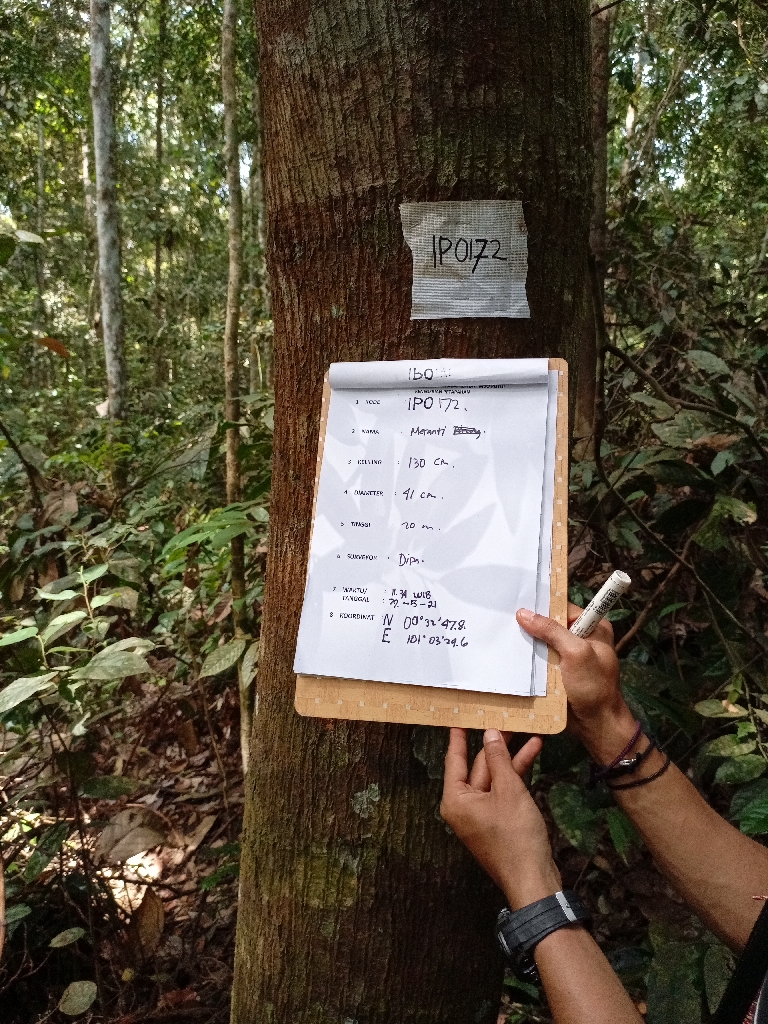 IPO172
IPO
1 KODE : IPO172.
2 NAMA : Meranti
3 KELILING : 130 cm.
4 DIAMETER : 41 cm.
5 TINGGI 20 m.
6 SURVEYOR : Dipa.
7 WAKTU/ : 11.34 WIB
TANGGAL : 29-5-21
8 KOORDINAT N 00°32'47.8.
E 101°03'29.6